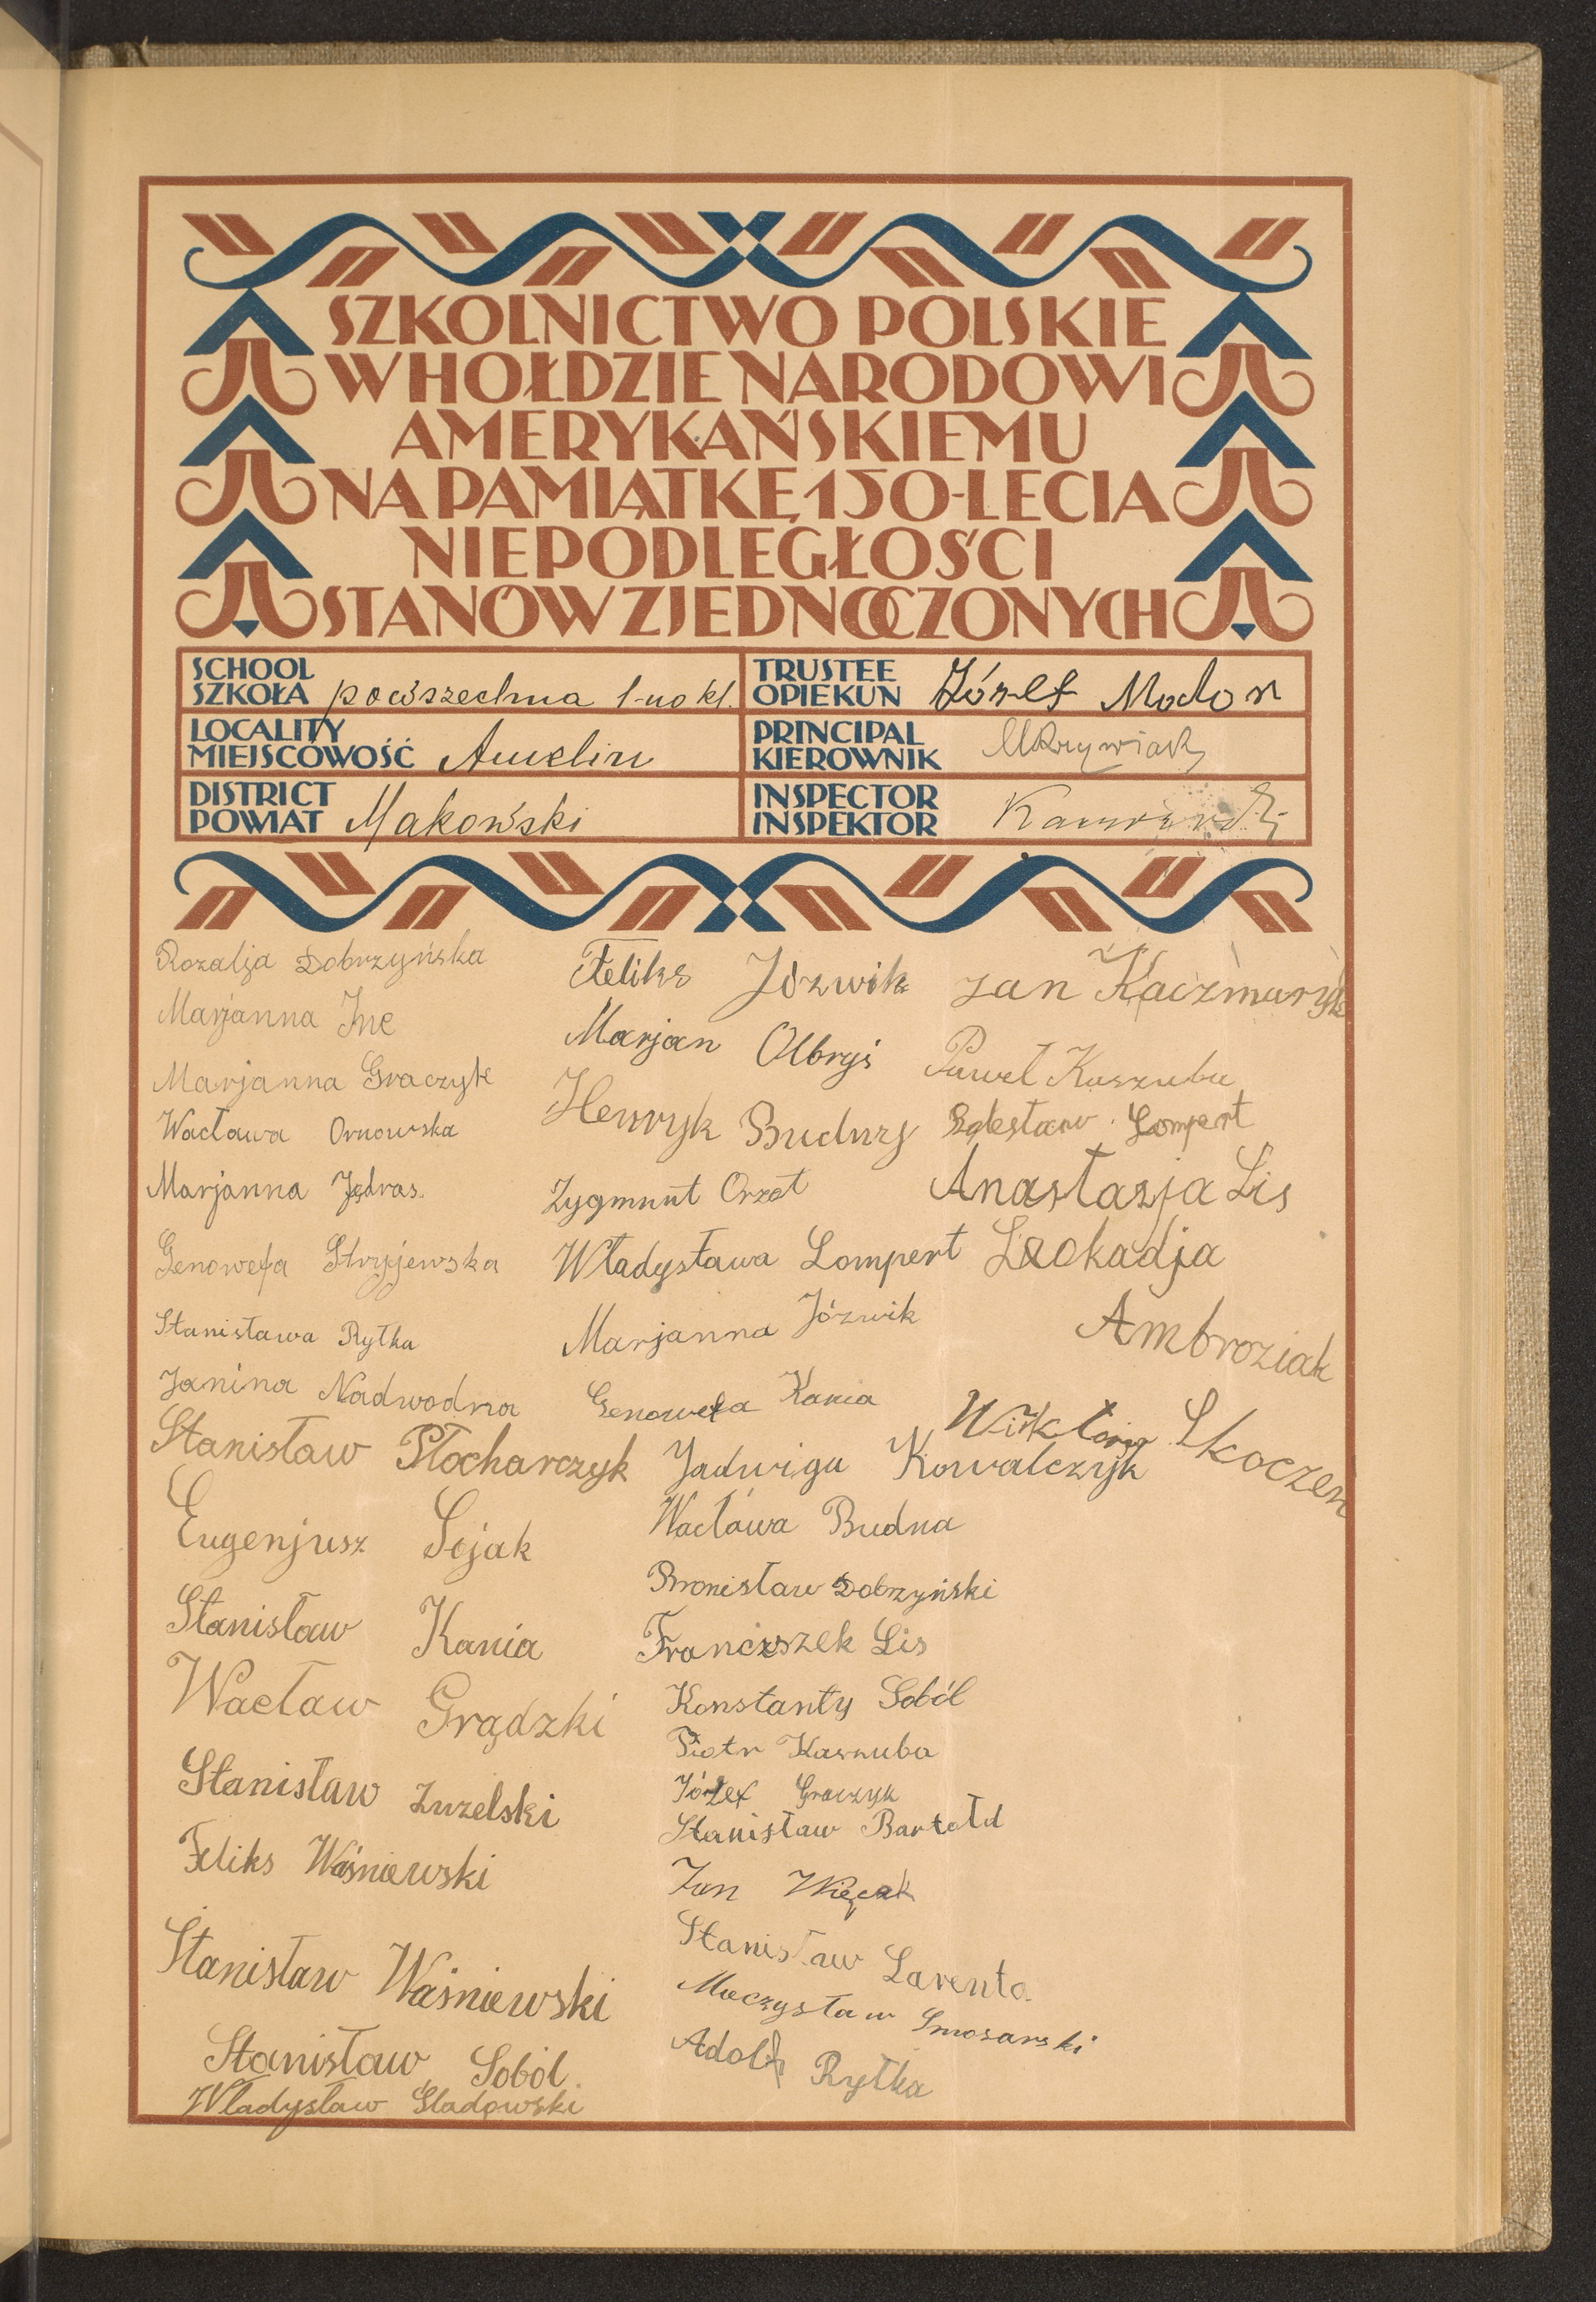 SZKOLNICTWO POLSKIE
W HOŁDZIE NARODOWI
AMERYKAŃSKIEMU
NA PAMIĄTKĘ 150-LECIA
NIEPODLEGŁOŚCI
STANÓW ZJEDNOCZONYCH
SCHOOL
SZKOŁA powszechna 1-no kl.
TRUSTEE
OPIEKUN Józef Modon
LOCALITY
MIEJSCOWOŚĆ Amelin
PRINCIPAL
KIEROWNIK
DISTRICT
POWIAT Makowski
INSPECTOR
INSPEKTOR
Rozalja Dobrzyńska
Marjanna Jne
Marjanna Graczyk
Wacława Ornowska
Marjanna Jędras.
Genowefa Stryjewska
Stanisława Rytka
Janina Nadwodna
Stanisław Płocharczyk
Eugenjusz Sojak
Stanisław Kania
Wacław Grądzki
Stanisław Zuzelski
Feliks Waśniewski
Stanisław Waśniewski
Stanisław Soból.
Władysław Gladowski
Feliks Józwik
Marjan Olbryś
Henryk Budny
Zygmunt Orzoł
Władysława Lompert
Marjanna Józwik
Genowefa Kania
Jadwiga Kowalczyk
Wacława Budna
Bronisław Dobrzyński
Franciszek Lis
Konstanty Soból
Piotr Kaszuba
Józef Graczyk
Stanisław Bartołd
Jan Więcek
Stanisław Laventa
Mieczysław Smosarski
Adolf Rytka
Jan Kaczmaryk
Paweł Kaszuba
Bolesław Lompert
Anastazja Lis
Leokadja
Ambroziak
Wiktorja Skoczen